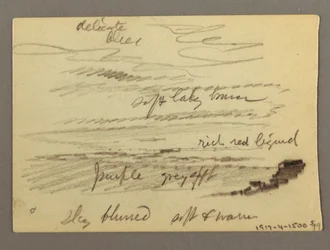 delicate
blue
soft
rich red liquid
purple grey
sky blurred soft & warm
1917-4-1500